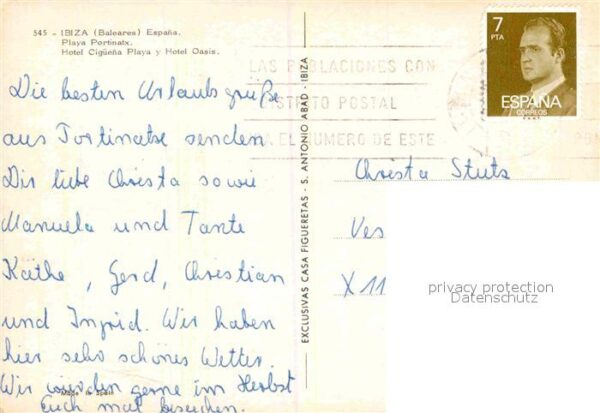 545 - IBIZA (Baleares) España.
Playa Portinatx.
Hotel Cigüeña Playa y Hotel Oasis.
Die besten Urlaubsgrüße
aus Portinatse senden
Dir liebe Christa sowie
Manuela und Tante
Käthe, Gerd, Christian
und Ingrid. Wir haben
hier sehr schönes Wetter.
Wir würden gerne im Herbst
Euch mal besuchen.
Made in Spain
EXCLUSIVAS CASA FIGUERETAS - S. ANTONIO ABAD - IBIZA
LAS POBLACIONES CON
DISTRITO POSTAL
A EL NUMERO DE ESTE
7
PTA
ESPAÑA
CORREOS
Christa Stutz
Ves
X 11
privacy protection
Datenschutz